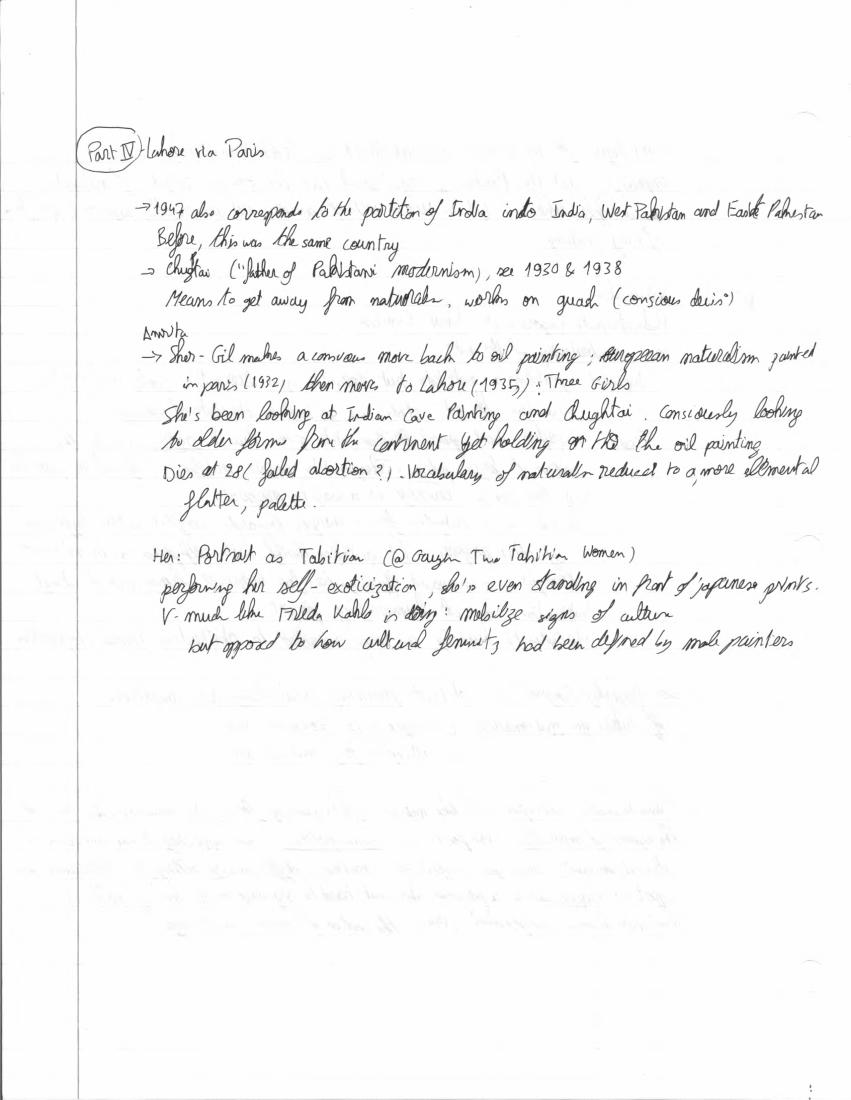 Part IV - Lahore via Paris
→ 1947 also corresponds to the partition of India into India, West Pakistan and East Pakestan
Before, this was the same country
→ Chughtai ("father of Pakistani modernism), see 1930 & 1938
Means to get away from naturalism, works on guach (conscious decis°)
Amrita
→ Sher-Gil makes a conscious move back to oil painting; european naturalism painted
in paris (1932) then moves to Lahore (1935): Three Girls
She's been looking at Indian Cave Painting and Chughtai. Consciously looking
to older forms from the continent yet holding on to the oil painting
Dies at 28 (failed abortion?). Vocabulary of naturalism reduced to a more elemental
flatter, palette.
Her: Portrait as Tahitian (@ Gauguin Two Tahitian Women)
performing her self-exoticization, she's even standing in front of japanese prints.
V. much like Frieda Kahlo in doing: mobilize signs of culture
but opposed to how cultural feminity had been defined by male painters